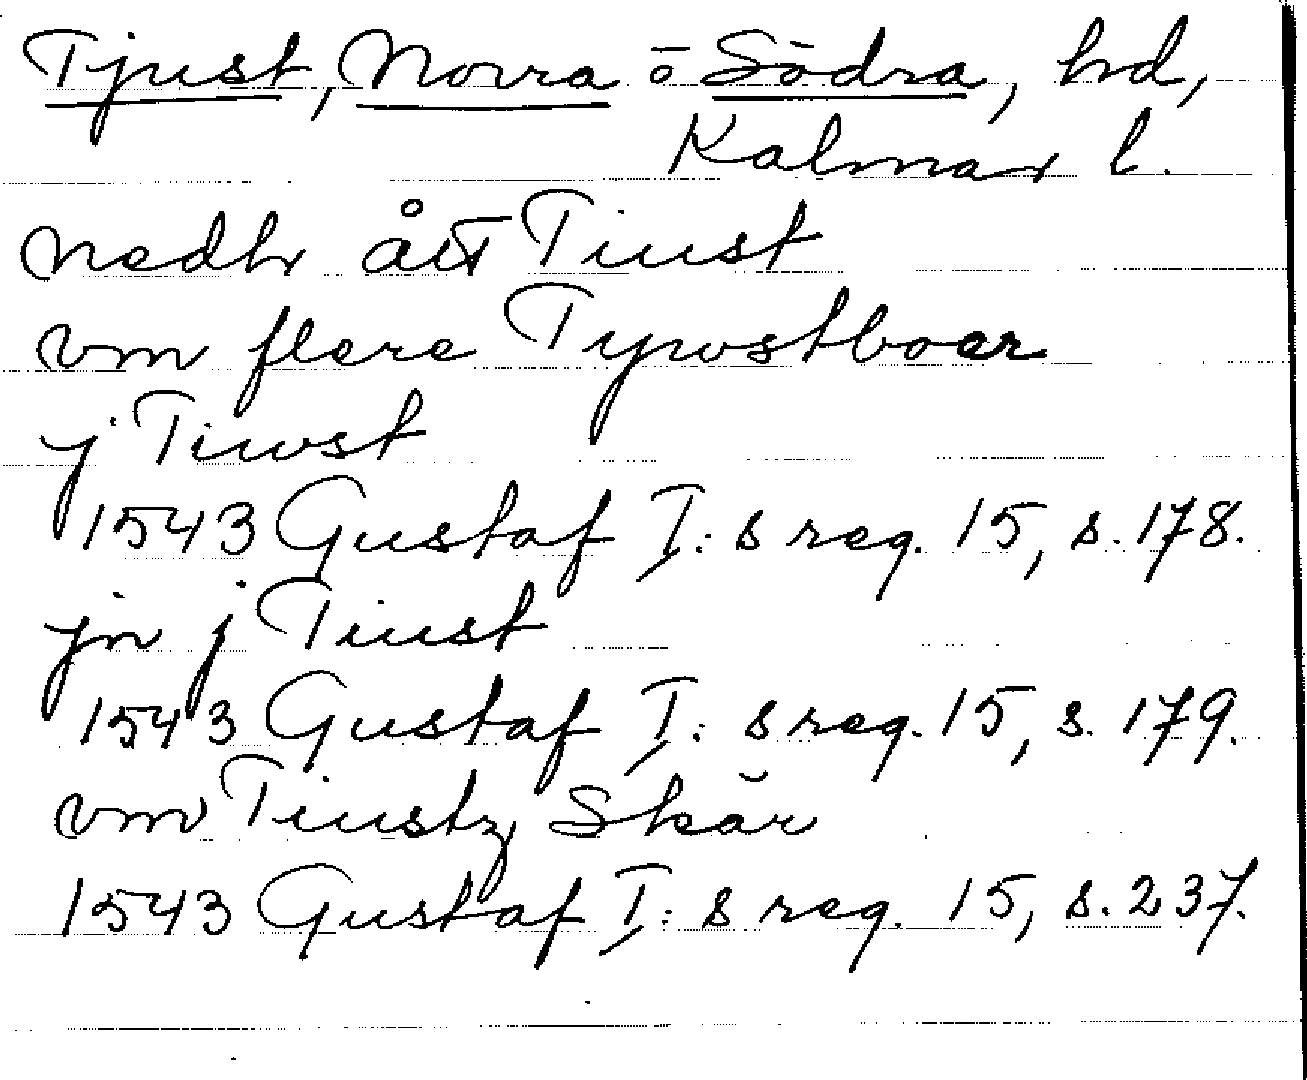 Tjust, Norra o Södra, hd,
Kalmar l.
nedh ått Tiust
vm flere Tywstboer
j Tiwst
1543 Gustaf I:s reg. 15, s. 178.
jn j Tiust
1543 Gustaf I:s reg. 15, s. 179.
vm Tiustz Skär
1543 Gustaf I:s reg. 15, s. 237.